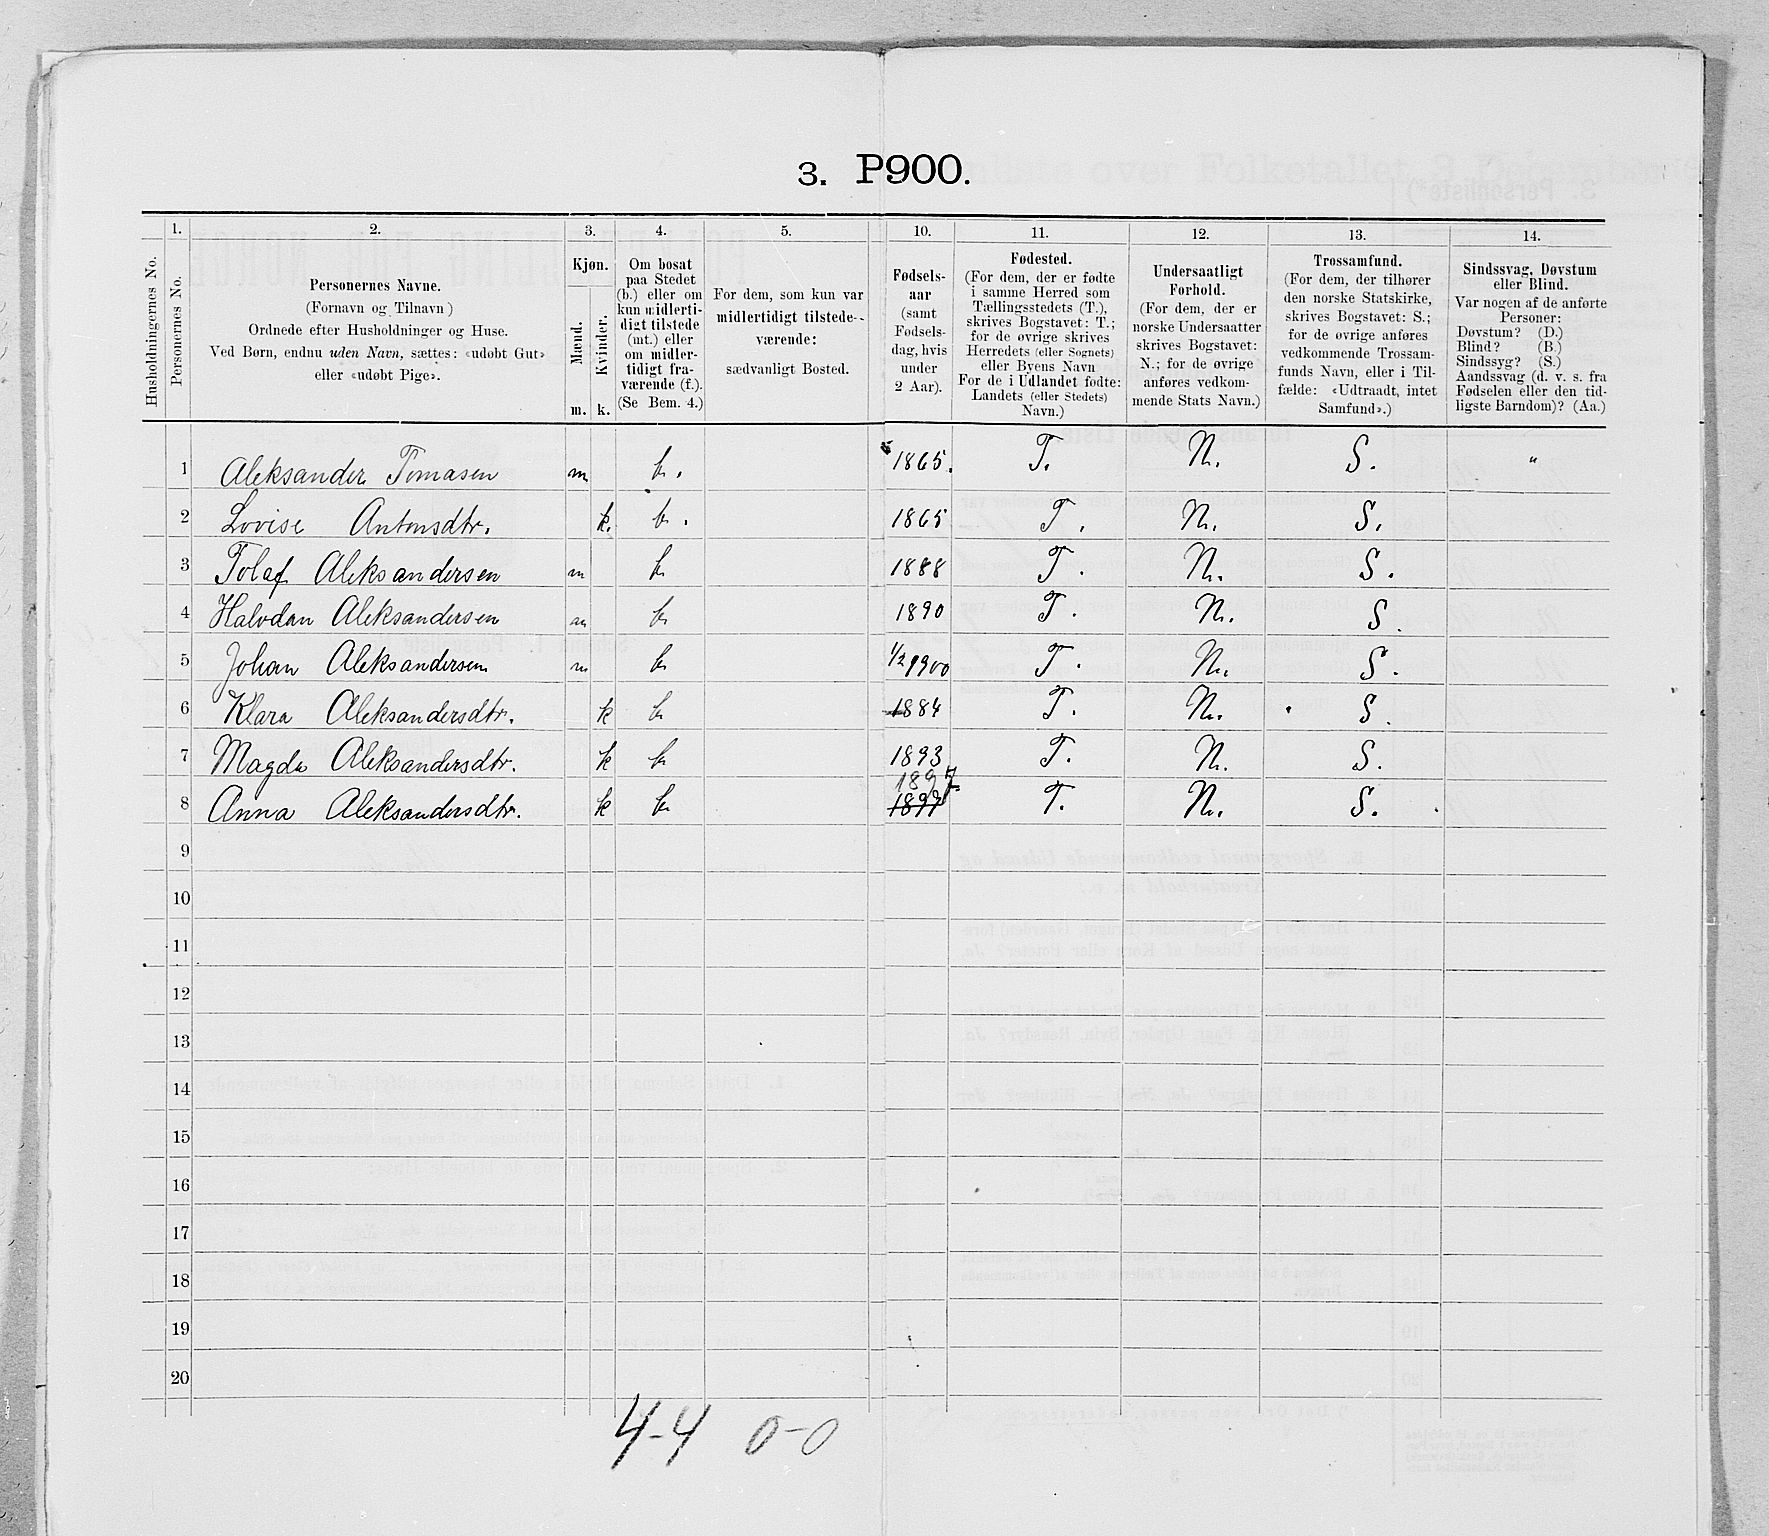 3. P900.
1. 2. 3. 4. 5. 10. 11. 12. 13. 14.
Husholdningernes No.
Personernes No.
Personernes Navne.
(Fornavn og Tilnavn)
Ordnede efter Husholdninger og Huse.
Ved Børn, endnu uden Navn, sættes: «udøbt Gut»
eller «udøbt Pige».
Kjøn.
Mænd.
Kvinder.
m. k.
Om bosat
paa Stedet
(b.) eller om
kun midlerti-
digt tilstede
(mt.) eller
om midler-
tidigt fra-
værende (f.).
(Se Bem. 4.)
For dem, som kun var
midlertidigt tilstede-
værende:
sædvanligt Bosted.
Fødsels-
aar
(samt
Fødsels-
dag, hvis
under
2 Aar).
Fødested.
(For dem, der er fødte
i samme Herred som
Tællingsstedets (T.),
skrives Bogstavet: T.;
for de øvrige skrives
Herredets (eller Sognets)
eller Byens Navn
For de i Udlandet fødte:
Landets (eller Stedets)
Navn.)
Undersaatligt
Forhold.
(For dem, der er
norske Undersaatter
skrives Bogstavet:
N.; for de øvrige
anføres vedkom-
mende Stats Navn.)
Trossamfund.
(For dem, der tilhører
den norske Statskirke,
skrives Bogstavet: S.;
for de øvrige anføres
vedkommende Trossam-
funds Navn, eller i Til-
fælde: «Udtraadt, intet
Samfund».)
Sindssvag, Døvstum
eller Blind.
Var nogen af de anførte
Personer:
Døvstum? (D.)
Blind? (B.)
Sindssyg? (S.)
Aandssvag (d. v. s. fra
Fødselen eller den tid-
ligste Barndom)? (Aa.)
1 Aleksander Tomasen m b. 1865. T. N. S. "
2 Lovise Antonsdtr. k. b. 1865 T. N. S.
3 Tolaf Aleksandersen m b 1888 T. N. S.
4 Halvdan Aleksandersen m b 1890 T. N. S.
5 Johan Aleksandersen m b 1/2 1900 T. N. S.
6 Klara Aleksandersdtr. k b 1884 T. N. S.
7 Magda Aleksandersdtr. k b 1893 T. N. S.
1897
8 Anna Aleksandersdtr. k b 1897 T. N. S.
9
10
11
12
13
14
15
16
17
18
19
20
4-4 0-0